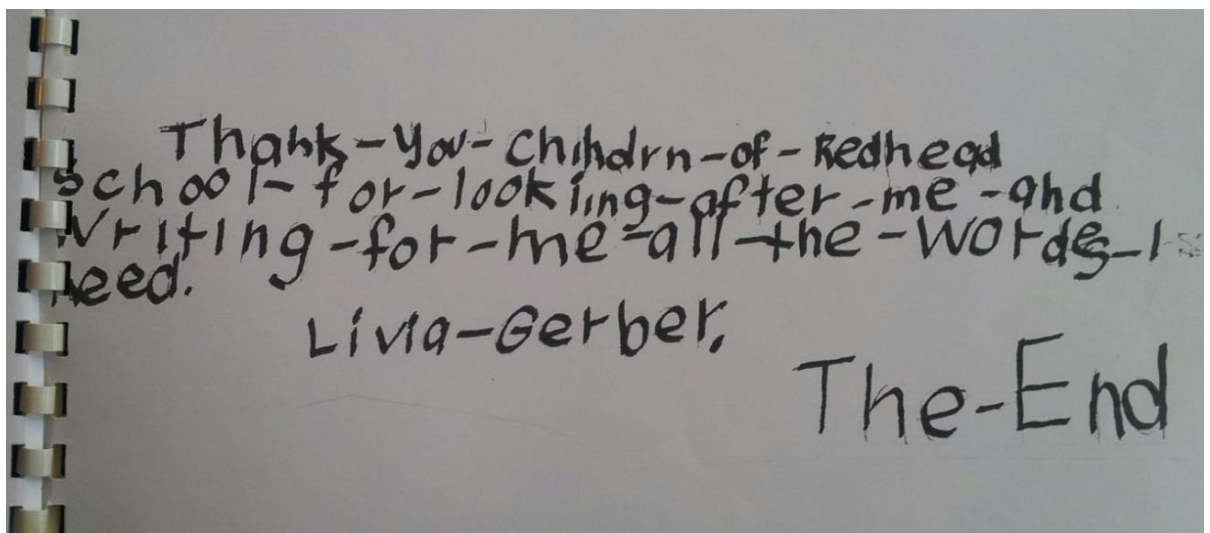 Thank-you-Chihdrn-of-Redhead
School-for-looking-after-me-and
Writing-for-me-all-the-words-I
need.
Livia-Gerber.
The-End